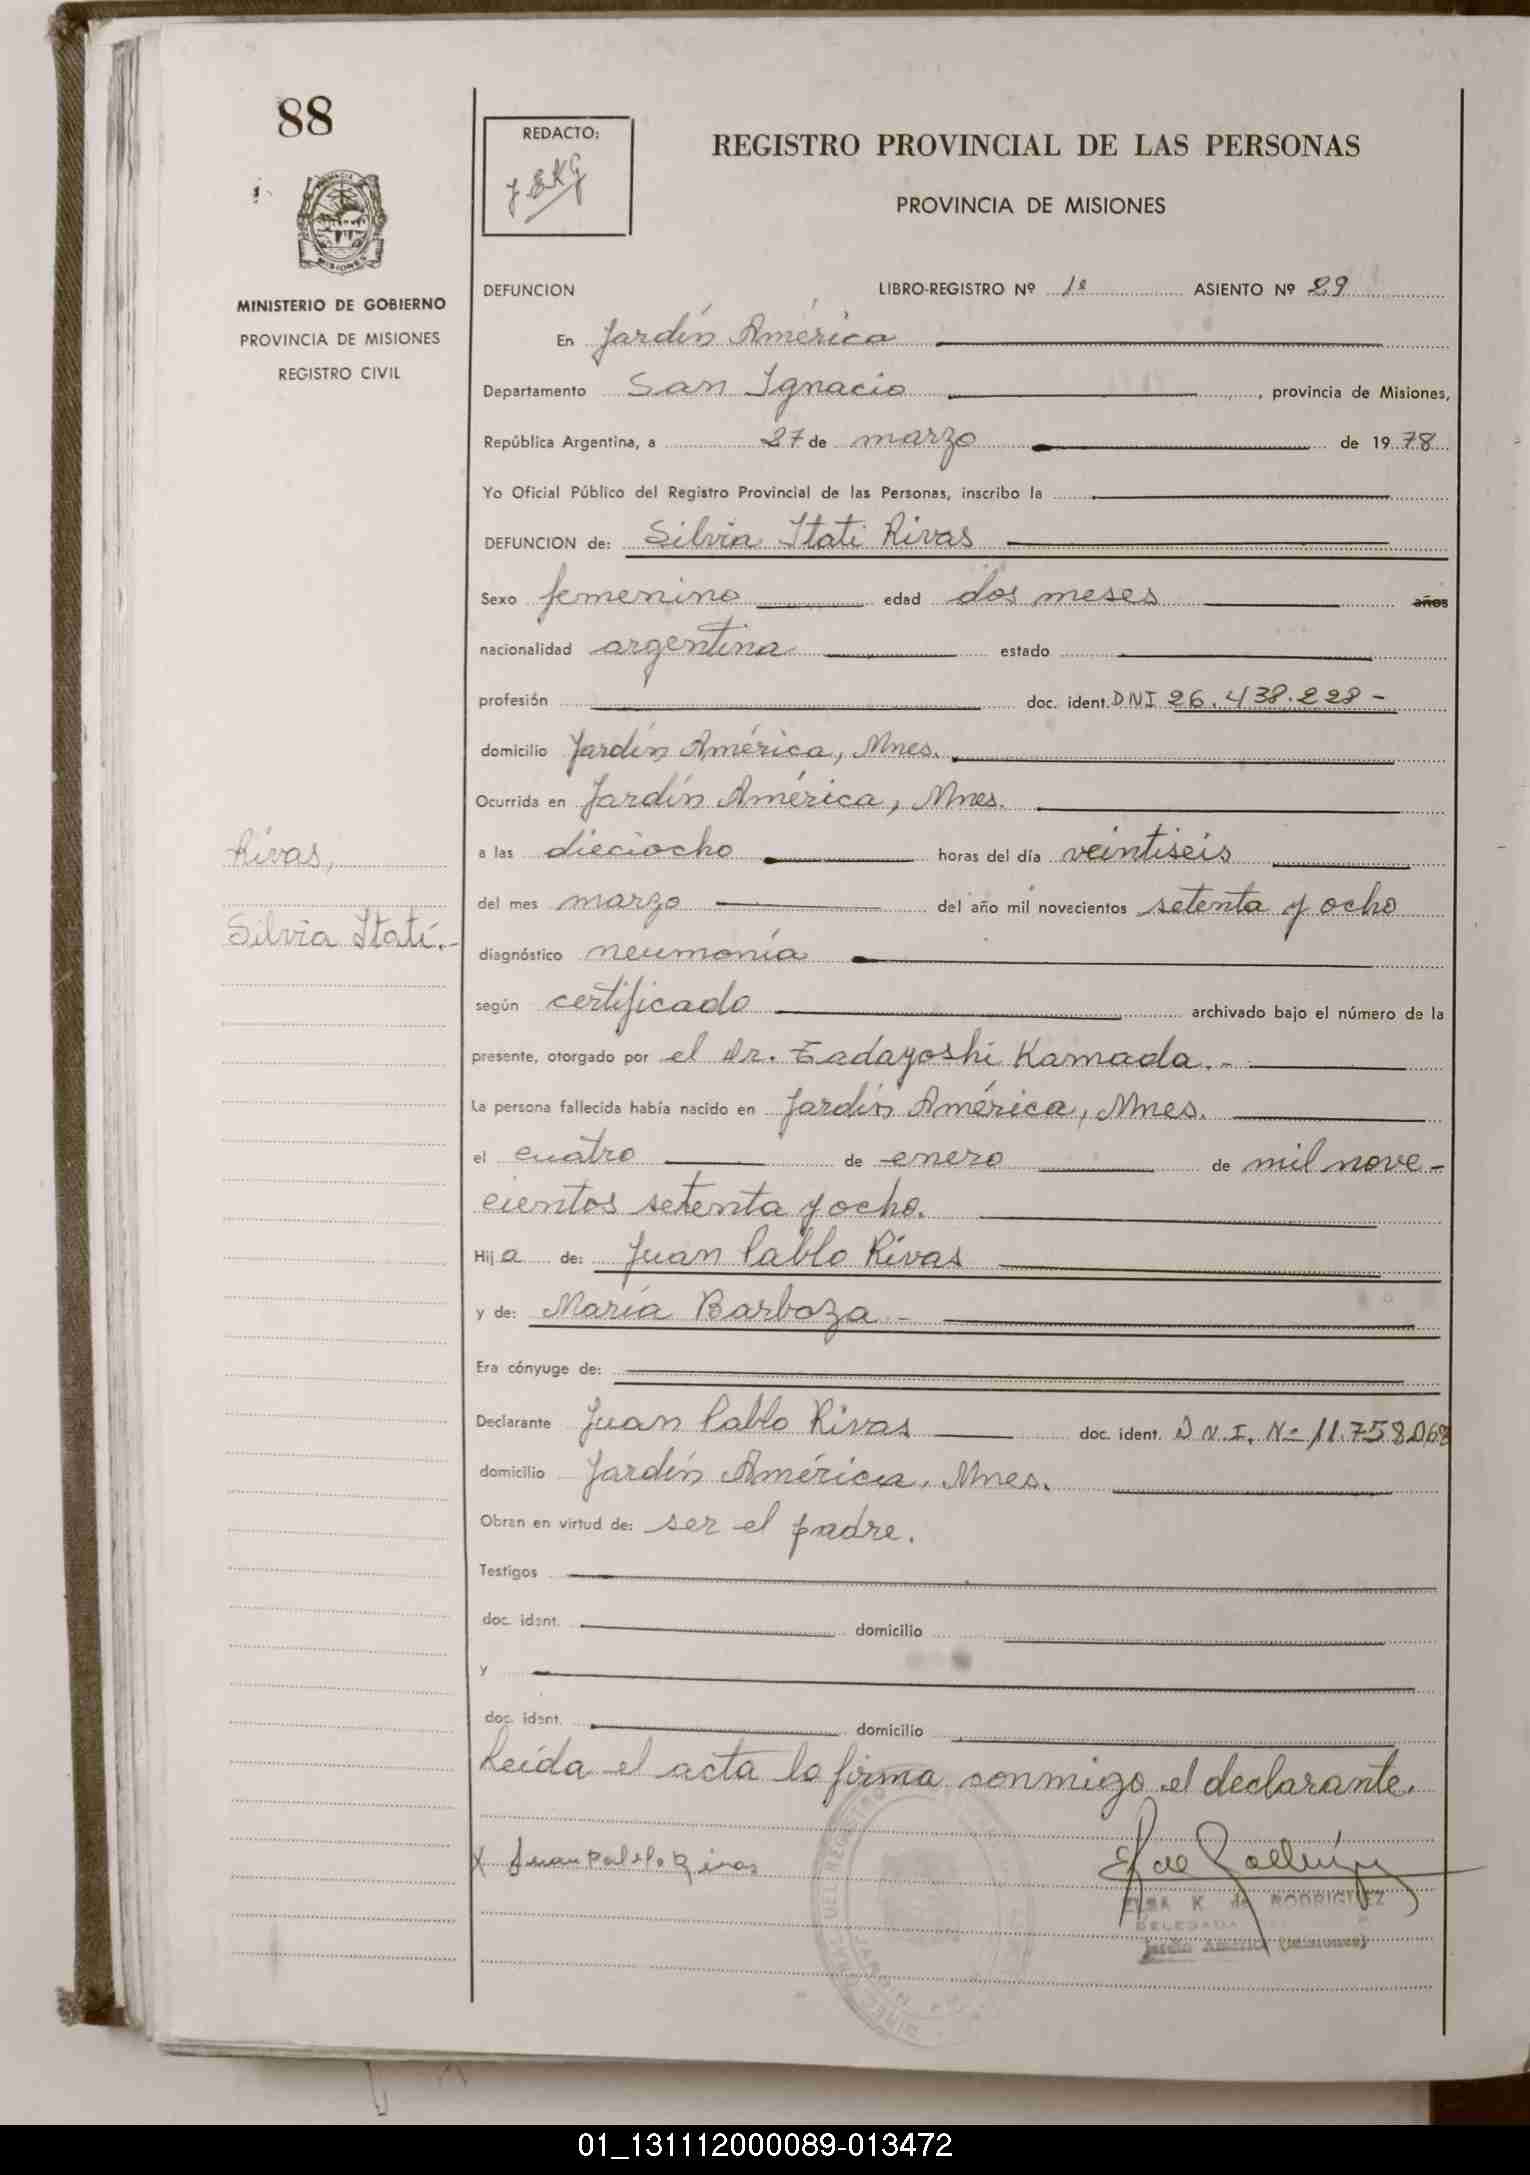 88
REDACTO:
REGISTRO PROVINCIAL DE LAS PERSONAS
PROVINCIA DE MISIONES
MISIONES
MINISTERIO DE GOBIERNO
PROVINCIA DE MISIONES
REGISTRO CIVIL
DEFUNCION LIBRO-REGISTRO Nº 1º ASIENTO Nº 29
En Jardín América
Departamento San Ignacio , provincia de Misiones,
República Argentina, a 27 de marzo de 1978
Yo Oficial Público del Registro Provincial de las Personas, inscribo la
DEFUNCION de: Silvia Itati Rivas
Sexo femenino edad dos meses años
nacionalidad argentina estado
profesión doc. ident. DNI 26.438.228-
domicilio Jardín América, Mnes.
Ocurrida en Jardín América, Mnes.
Rivas,
Silvia Itatí.-
a las dieciocho horas del día veintiseis
del mes marzo del año mil novecientos setenta y ocho
diagnóstico neumonía
según certificado archivado bajo el número de la
presente, otorgado por el Dr. Tadayoshi Kamada.-
La persona fallecida había nacido en Jardín América, Mnes.
el cuatro de enero de mil nove-
cientos setenta y ocho.
Hija de: Juan Pablo Rivas
y de: María Barboza -
Era cónyuge de:
Declarante Juan Pablo Rivas doc. ident. D N.I. Nº 11.758.068
domicilio Jardín América, Mnes.
Obran en virtud de: ser el padre.
Testigos
doc. ident. domicilio
y
doc. ident. domicilio
Leída el acta la firma conmigo el declarante.
x Juan Pablo Rivas
ELSA K de RODRIGUEZ
DELEGADA
Jardín América (Misiones)
01_131112000089-013472